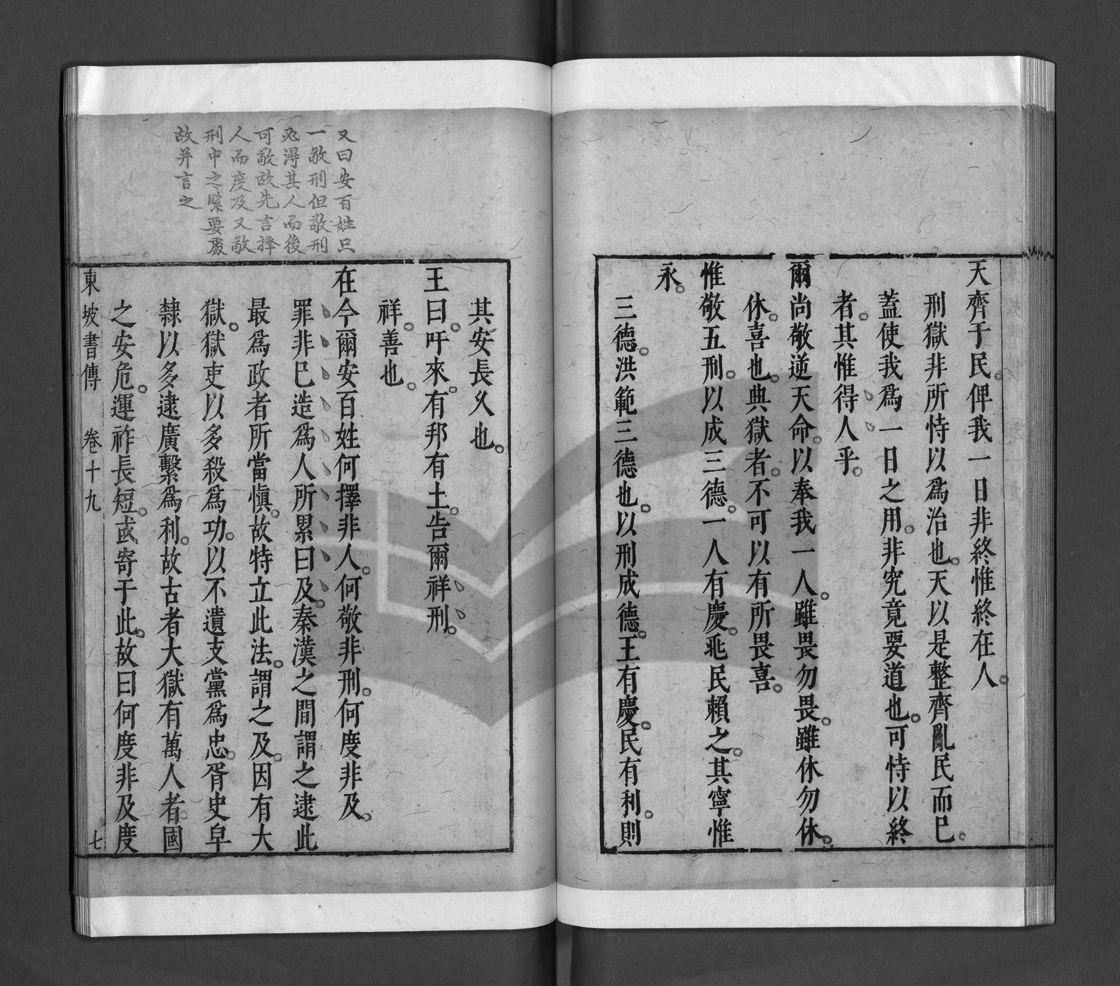 天齊于民俾我一日非終惟終在人
刑獄非所恃以爲治也天以是整齊亂民而已
蓋使我爲一日之用非究竟要道也可恃以終
者其惟得人乎
爾尚敬逆天命以奉我一人雖畏勿畏雖休勿休
休喜也典獄者不可以有所畏喜
惟敬五刑以成三德一人有慶兆民賴之其寧惟
永
三德洪範三德也以刑成德王有慶民有利則
其安長久也
王曰吁來有邦有土告爾祥刑
祥善也
在今爾安百姓何擇非人何敬非刑何度非及
罪非已造爲人所累曰及秦漢之間謂之逮此
最爲政者所當慎故特立此法謂之及因有大
獄獄吏以多殺爲功以不遺支黨爲忠胥史皁
隸以多逮廣繫爲利故古者大獄有萬人者國
之安危運祚長短或寄于此故曰何度非及度
東坡書傳 卷十九 七
又曰安百姓只
一敬刑但敬刑
必得其人而後
可敬故先言擇
人而度及又敬
刑中之緊要處
故并言之